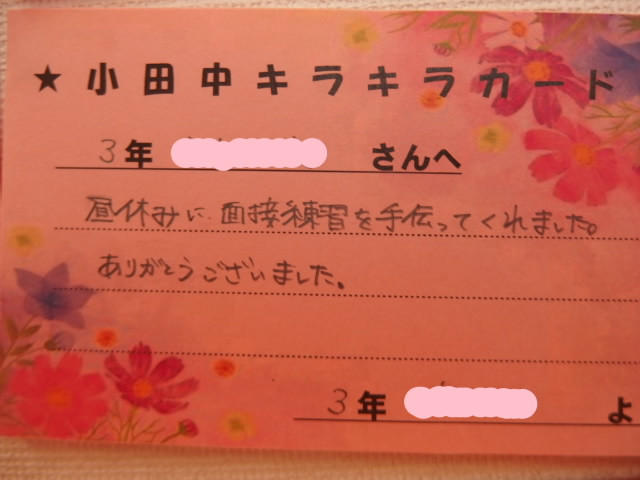 ★小田中キラキラカード
3年 さんへ
昼休みに、面接練習を手伝ってくれました。
ありがとうございました。
3年 よ